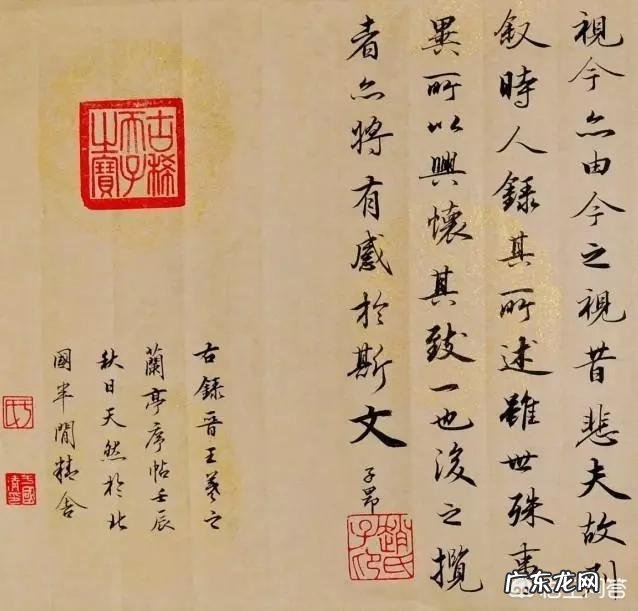 視今亦由今之視昔悲夫故列
叙時人錄其所述雖世殊事
異所以興懷其致一也後之攬
者亦將有感於斯文
子昂
古稀天子之寶
右錄晉王羲之
蘭亭序帖壬辰
秋日天然於北
國半閒精舍
广东龙网